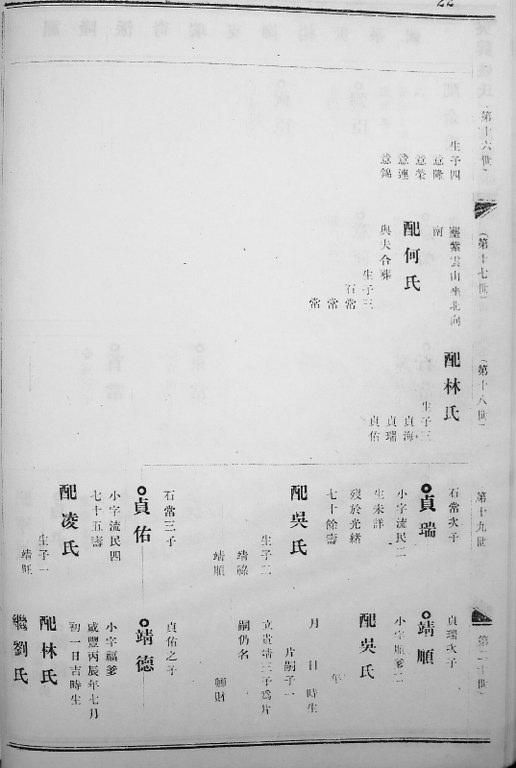 22
(第十六世)
生子四
意隆
意榮
意連
意錦
(第十七世)
塟紫雲山坐北向
南
配何氏
與夫合塟
生子三
石常
常
常
(第十八世)
配林氏
生子三
貞海
貞瑞
貞佑
第十九世
石常次子
貞瑞
小字流民二
生未詳
歿於光緒
七十餘壽
配吳氏
生子二
靖祿
靖順
石常三子
貞佑
小字流民四
七十五壽
配凌氏
生子一
靖
第二十世
貞瑞次子
靖順
小字順爹二
配吳氏
年
月 日 時生
片嗣子一
立貴靖三子爲片
嗣仍名
財
貞佑之子
靖德
小字福爹
咸豐丙辰年七月
初一日吉時生
配林氏
繼劉氏